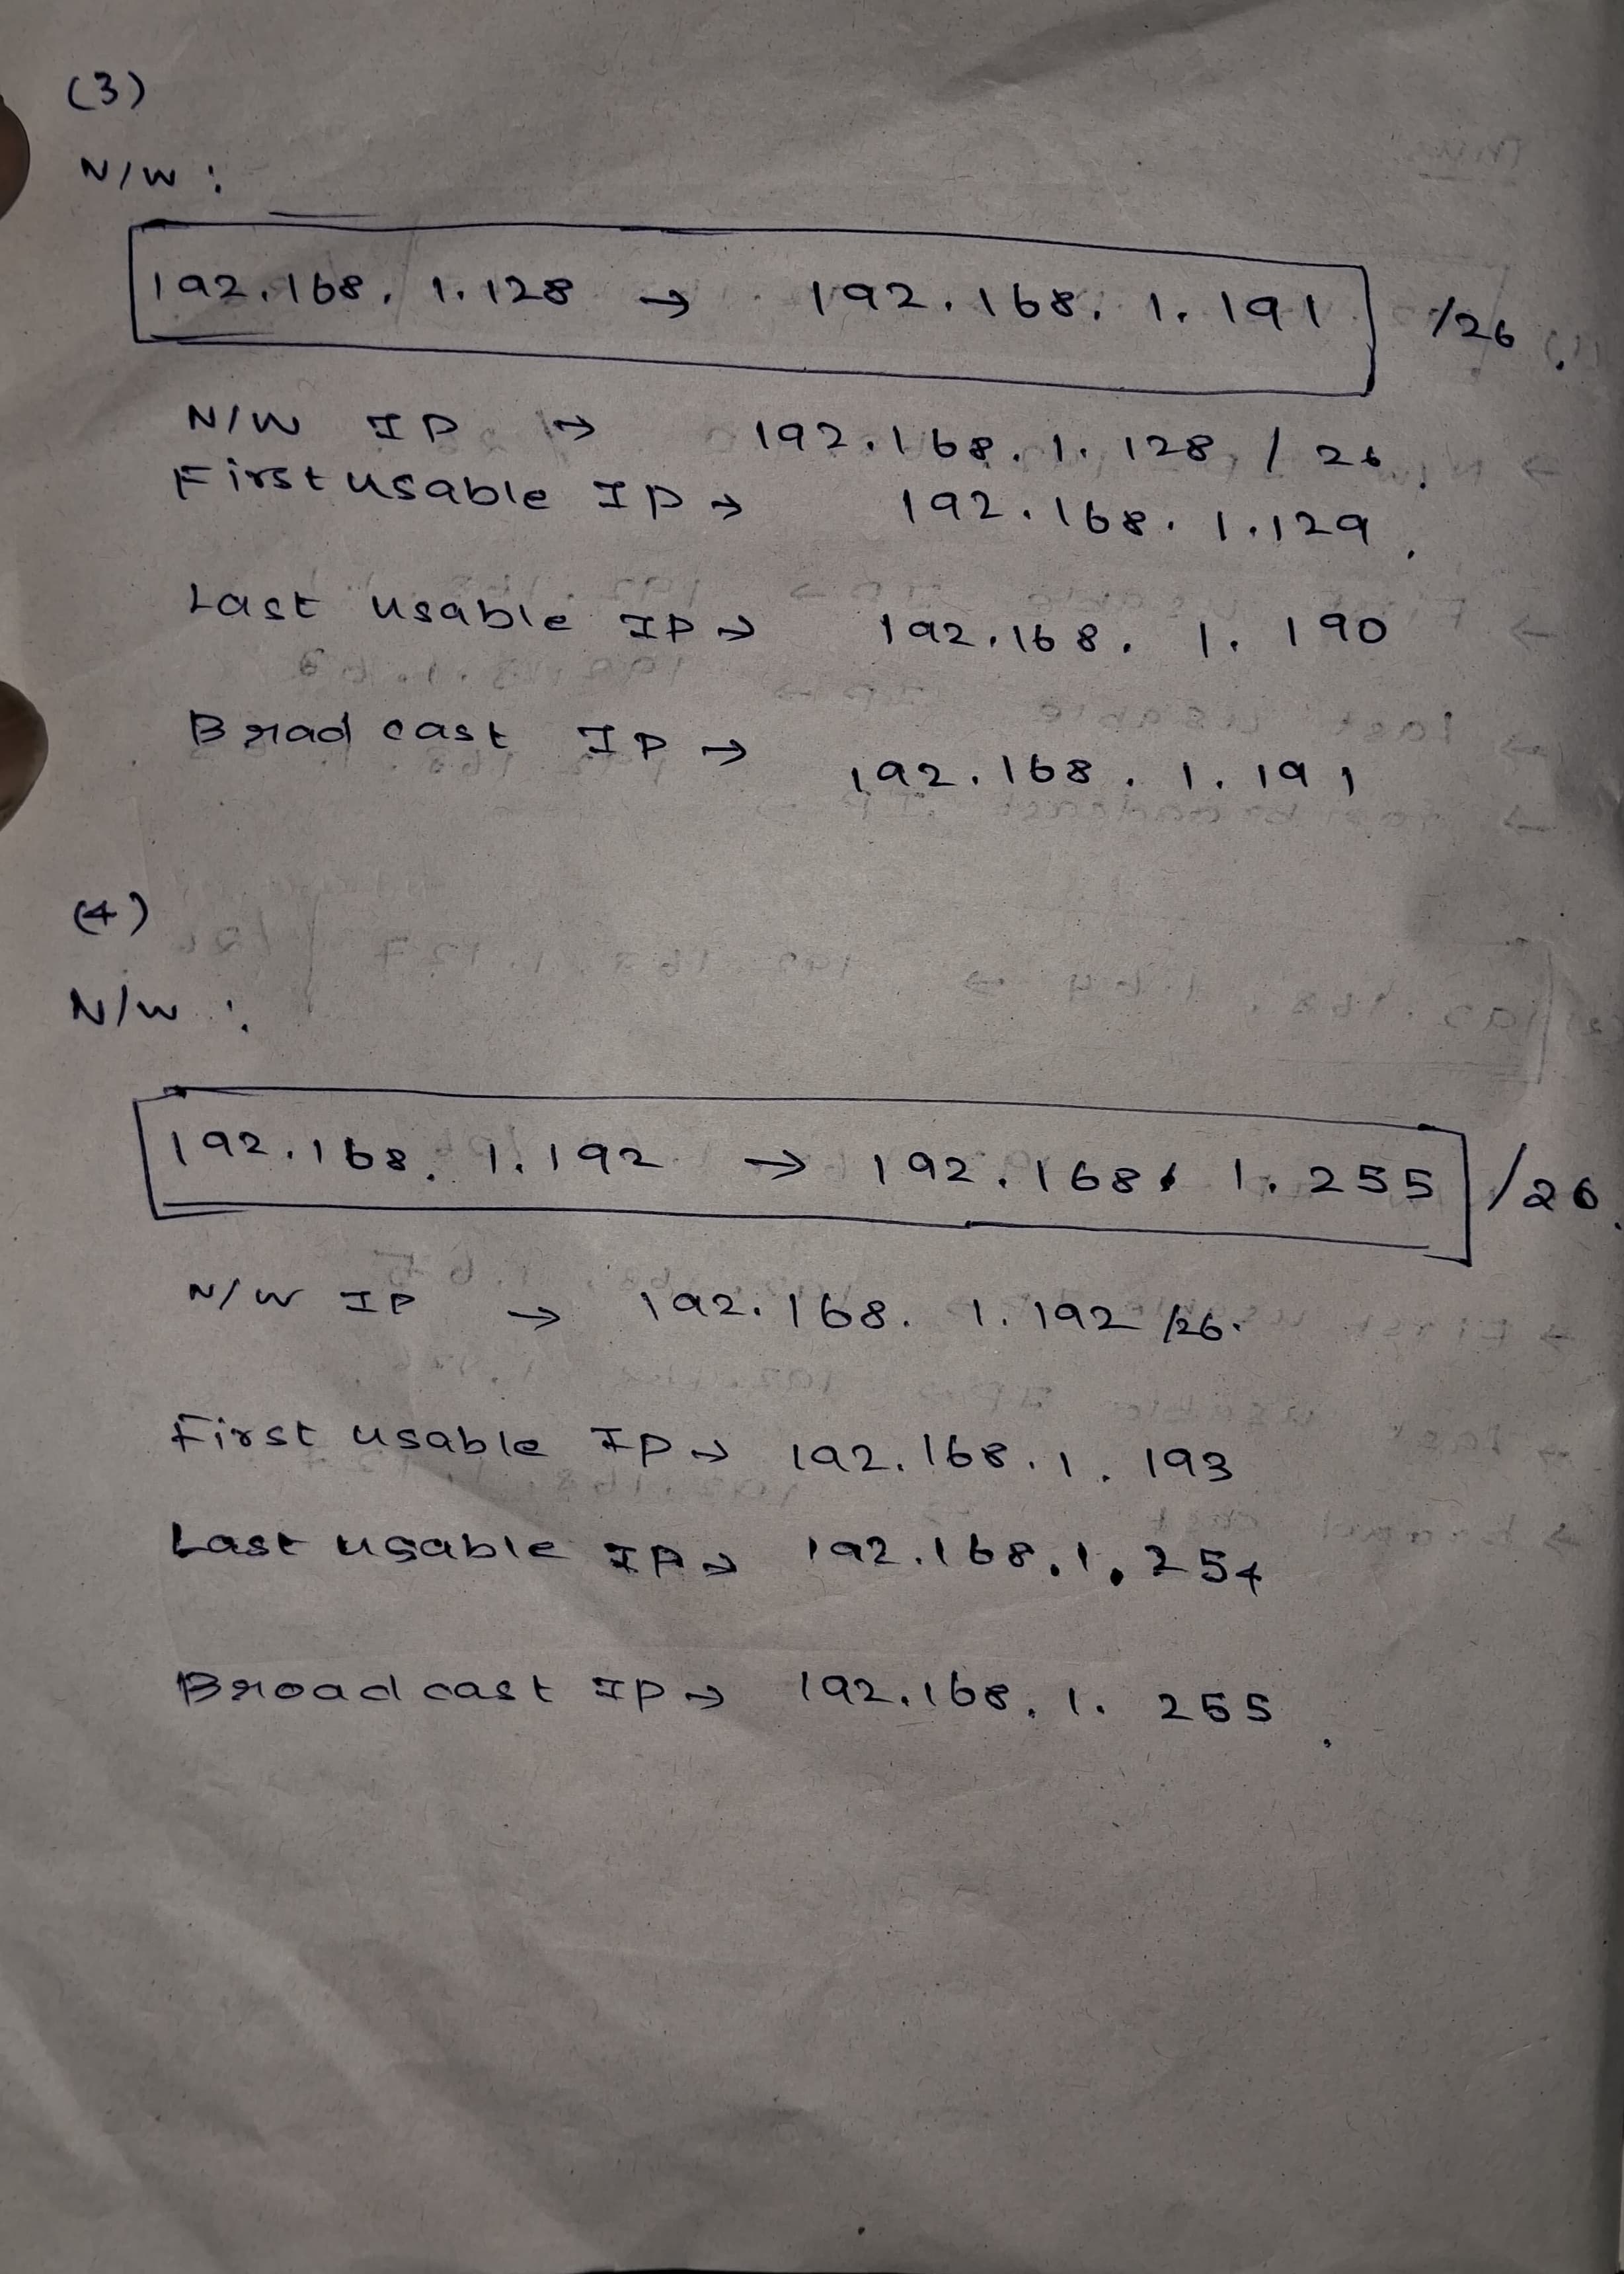 (3)
N/W :
192.168. 1.128 → 192.168. 1. 191 /26.
N/W IP → 192.168. 1. 128 / 26.
First usable IP → 192.168. 1.129.
Last usable IP → 192.168. 1. 190
Broad cast IP → 192.168. 1. 191
(4)
N/W :
192.168. 1.192 → 192.168. 1. 255 /26.
N/W IP → 192.168. 1.192 /26.
First usable IP → 192.168.1. 193
Last usable IP → 192.168.1.254
Broad cast IP → 192.168. 1. 255.